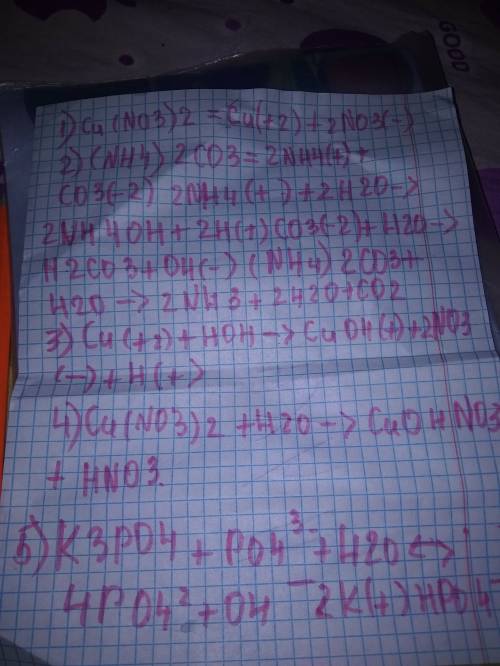 GOOD
1) Cu(NO3)2 = Cu(+2) + 2NO3(-)
2) (NH4)2CO3 = 2NH4(+) +
CO3(-2) 2NH4(+) + 2H2O ->
2NH4OH + 2H(+) CO3(-2) + H2O ->
H2CO3 + OH(-) (NH4)2CO3 +
H2O -> 2NH3 + 2H2O + CO2
3) Cu(+2) + HOH -> CuOH(+) + 2NO3
(-) + H(+)
4) Cu(NO3)2 + H2O -> CuOHNO3
+ HNO3.
5) K3PO4 + PO4³⁻ + H2O <->
4PO4² + OH⁻ 2K(+) HPO4⁻